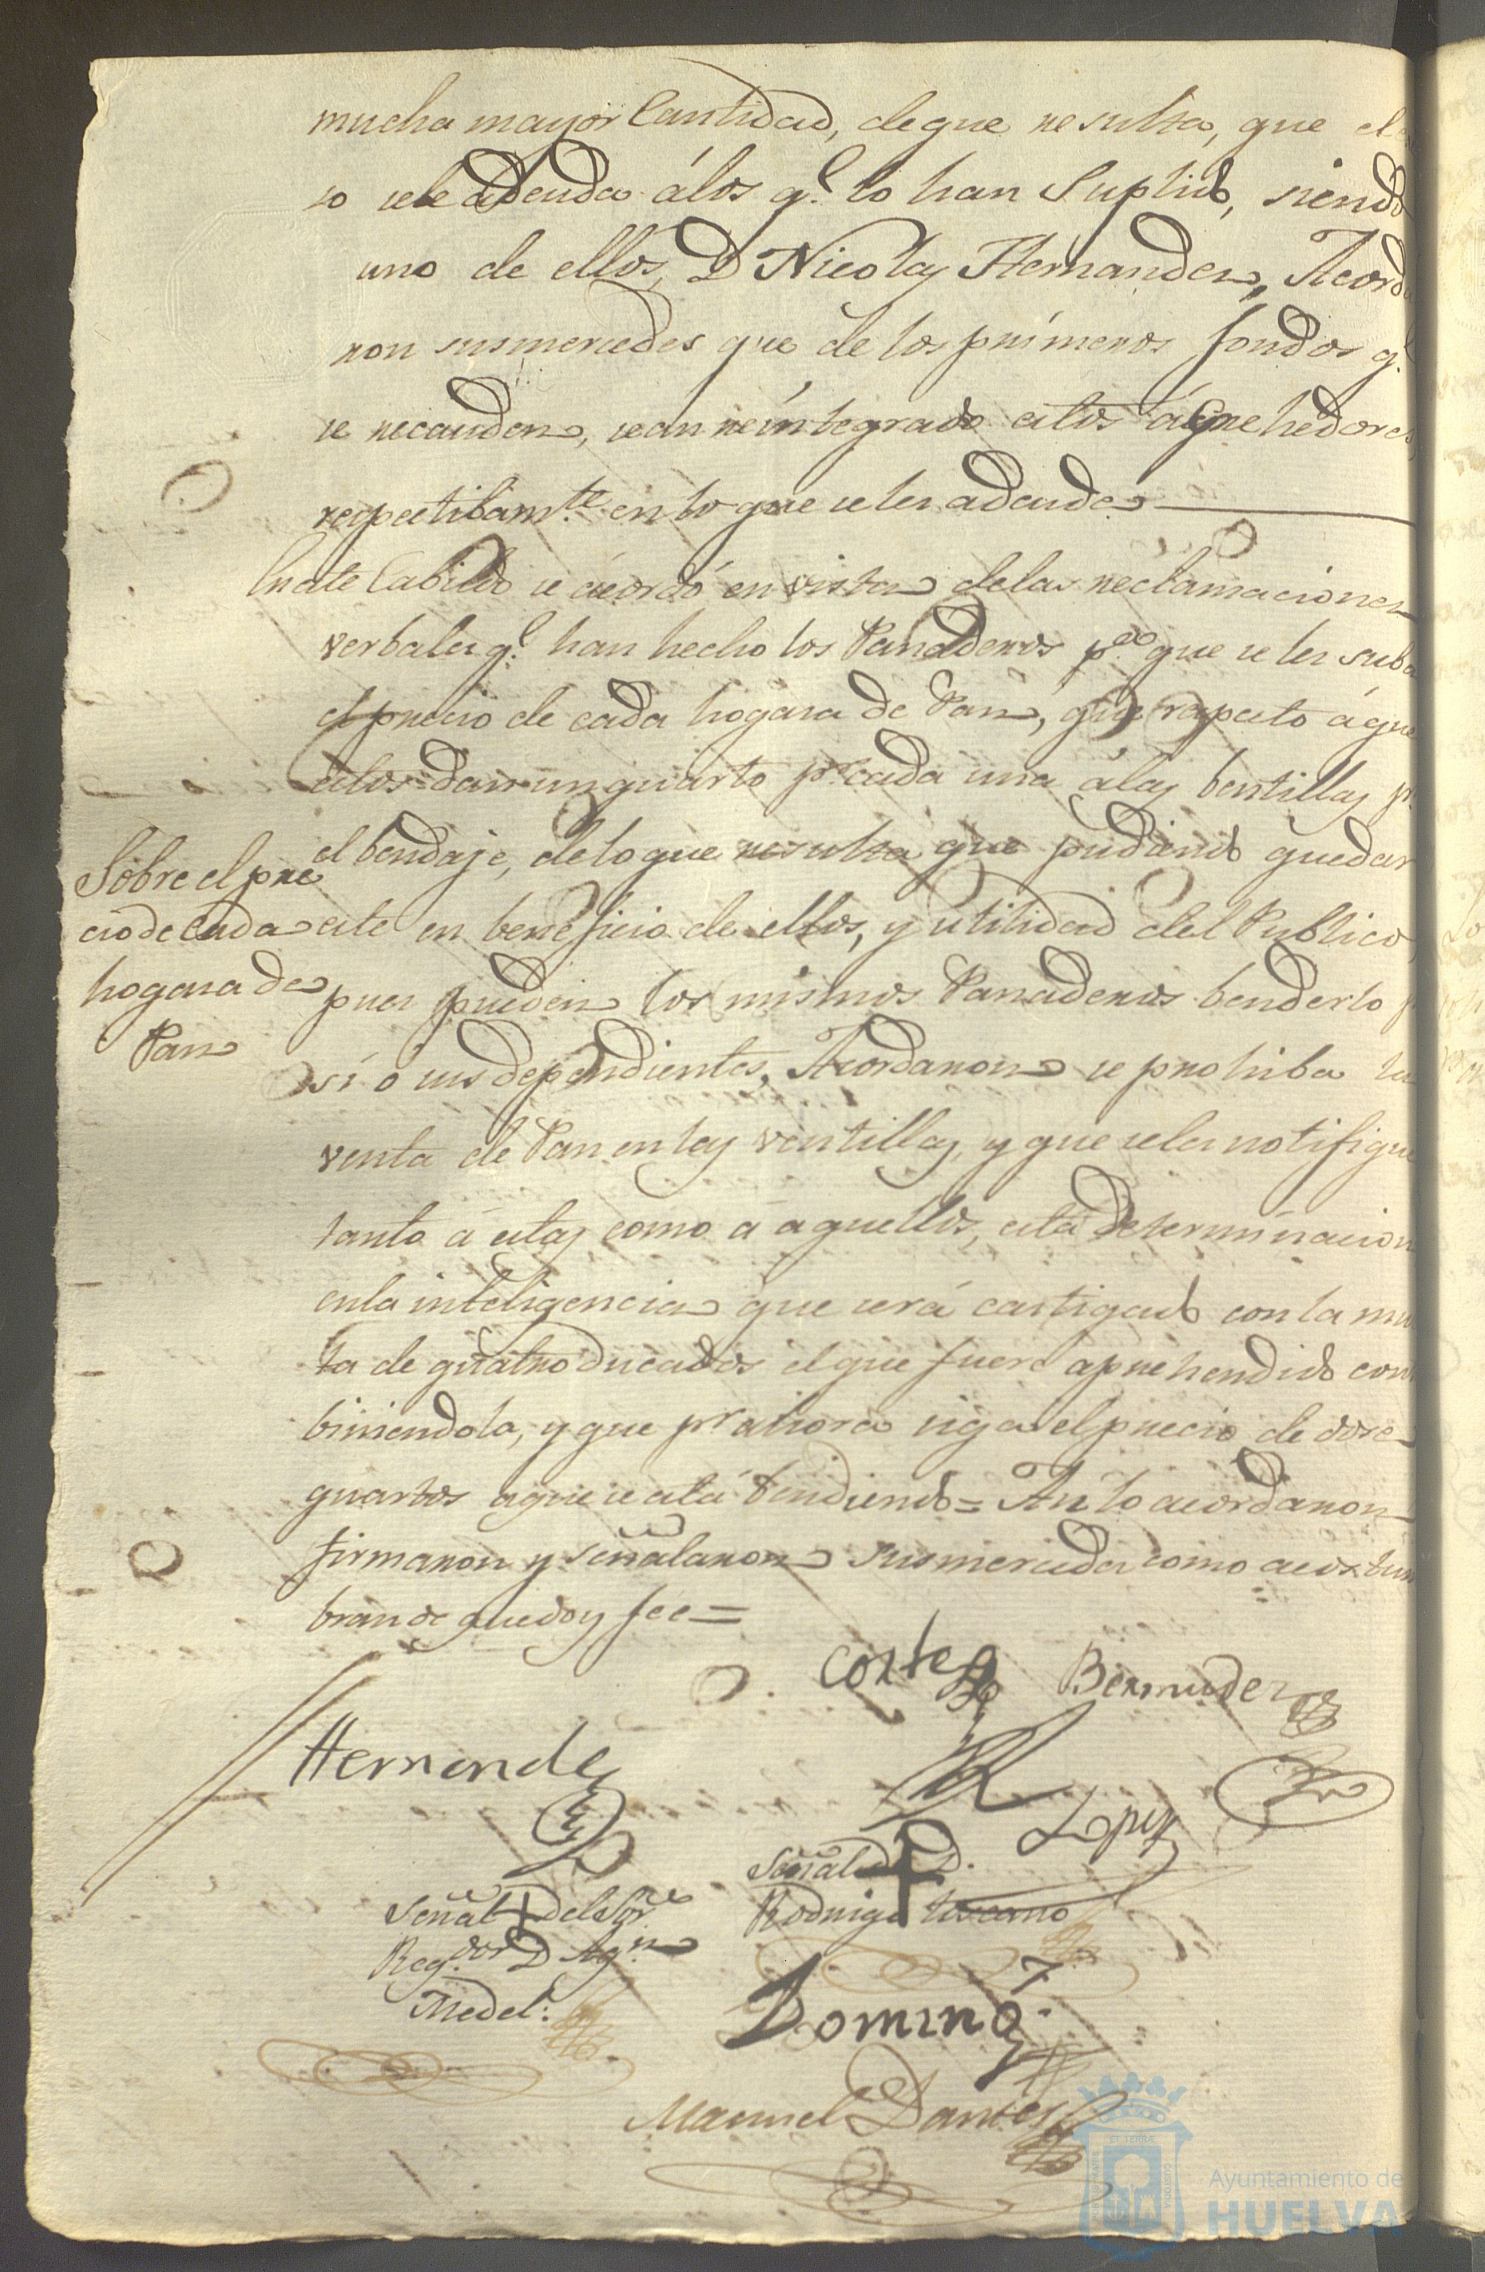 mucha mayor Cantidad, deque resulta, que el
se le adeuda álos q.e lo han Suplido, siendo
uno de ellos, D Nicolas Hernandez, Acorda
ron susmercedes que de los primeros fondos q.e
se recauden, sean reintegrado estos ácrehedores
respectibam.te en lo que se les adeude
En este Cabildo se ácordó en vista delas reclamaciones
verbales q.e han hecho los Panaderos p.a que se les suba
el precio de cada hogasa de Pan, que respecto á que
estos dan un quarto p.r cada una álas bentillas p.r
el bendaje, delo que resulta que pudiendo quedar
Sobre el pre
cio de cada
hogasa de
Pan
este en beneficio de ellos, y utilidad del Publico,
pues pueden los mismos Panaderos benderlo p
sí o sus dependientes, Acordaron se prohiba la
venta de Pan en las ventillas, y que seles notifique
tanto á estas como á aquellos, esta determinacion
enla inteligencia que será castigado con la mul
ta de quatro ducados el que fuere aprehendido contra
biniendola, y que p.r ahora siga el precio de dose
quartos aque se está bendiendo = Asi lo acordaron
firmaron y señalaron susmercedes como acostum
bran de que doy fee =
Cortes Bermudez
Hernandez
Lopez
Señal del Sor.
Reg.dor D Ag.n
Medel.
Señal de D.
Rodrigo toscano
Doming.
Manuel Dantes
Ayuntamiento de
HUELVA